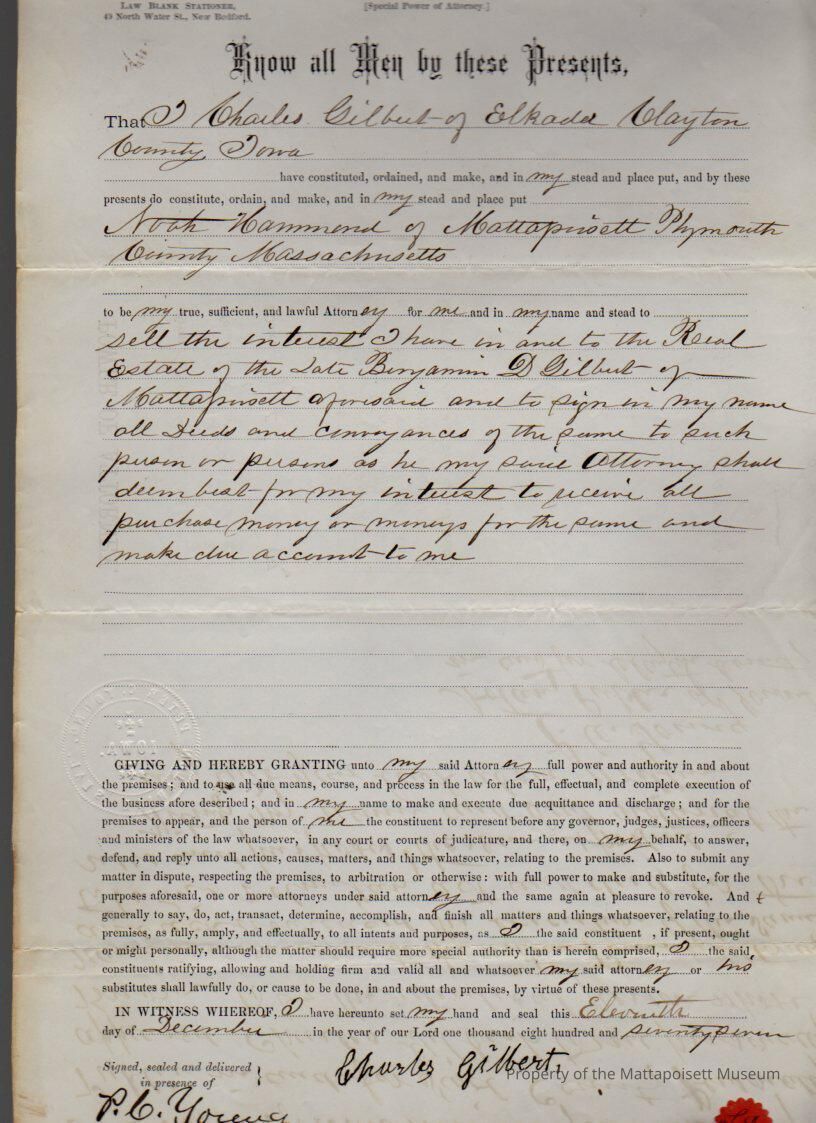 LAW BLANK STATIONER,
49 North Water St., New Bedford.
[Special Power of Attorney.]
Know all Men by these Presents,
That I Charles Gilbert of Elkader Clayton
County Iowa
have constituted, ordained, and make, and in my stead and place put, and by these
presents do constitute, ordain, and make, and in my stead and place put
Noah Hammond of Mattapoisett Plymouth
County Massachusetts
to be my true, sufficient, and lawful Attorney for me and in my name and stead to
sell the interest I have in and to the Real
Estate of the Late Benjamin D Gilbert of
Mattapoisett aforesaid and to sign in my name
all Deeds and conveyances of the same to such
person or persons as he my said Attorney shall
deem best for my interest to receive all
purchase money or moneys for the same and
make due account to me
GIVING AND HEREBY GRANTING unto my said Attorney full power and authority in and about
the premises; and to use all due means, course, and process in the law for the full, effectual, and complete execution of
the business afore described; and in my name to make and execute due acquittance and discharge; and for the
premises to appear, and the person of me the constituent to represent before any governor, judges, justices, officers
and ministers of the law whatsoever, in any court or courts of judicature, and there, on my behalf, to answer,
defend, and reply unto all actions, causes, matters, and things whatsoever, relating to the premises. Also to submit any
matter in dispute, respecting the premises, to arbitration or otherwise: with full power to make and substitute, for the
purposes aforesaid, one or more attorneys under said attorney and the same again at pleasure to revoke. And
generally to say, do, act, transact, determine, accomplish, and finish all matters and things whatsoever, relating to the
premises, as fully, amply, and effectually, to all intents and purposes, as I the said constituent , if present, ought
or might personally, although the matter should require more special authority than is herein comprised, I the said
constituents ratifying, allowing and holding firm and valid all and whatsoever my said attorney or his
substitutes shall lawfully do, or cause to be done, in and about the premises, by virtue of these presents.
IN WITNESS WHEREOF, I have hereunto set my hand and seal this Eleventh
day of December in the year of our Lord one thousand eight hundred and seventy seven
Signed, sealed and delivered
in presence of
Charles Gilbert.
Property of the Mattapoisett Museum
P. C. Young